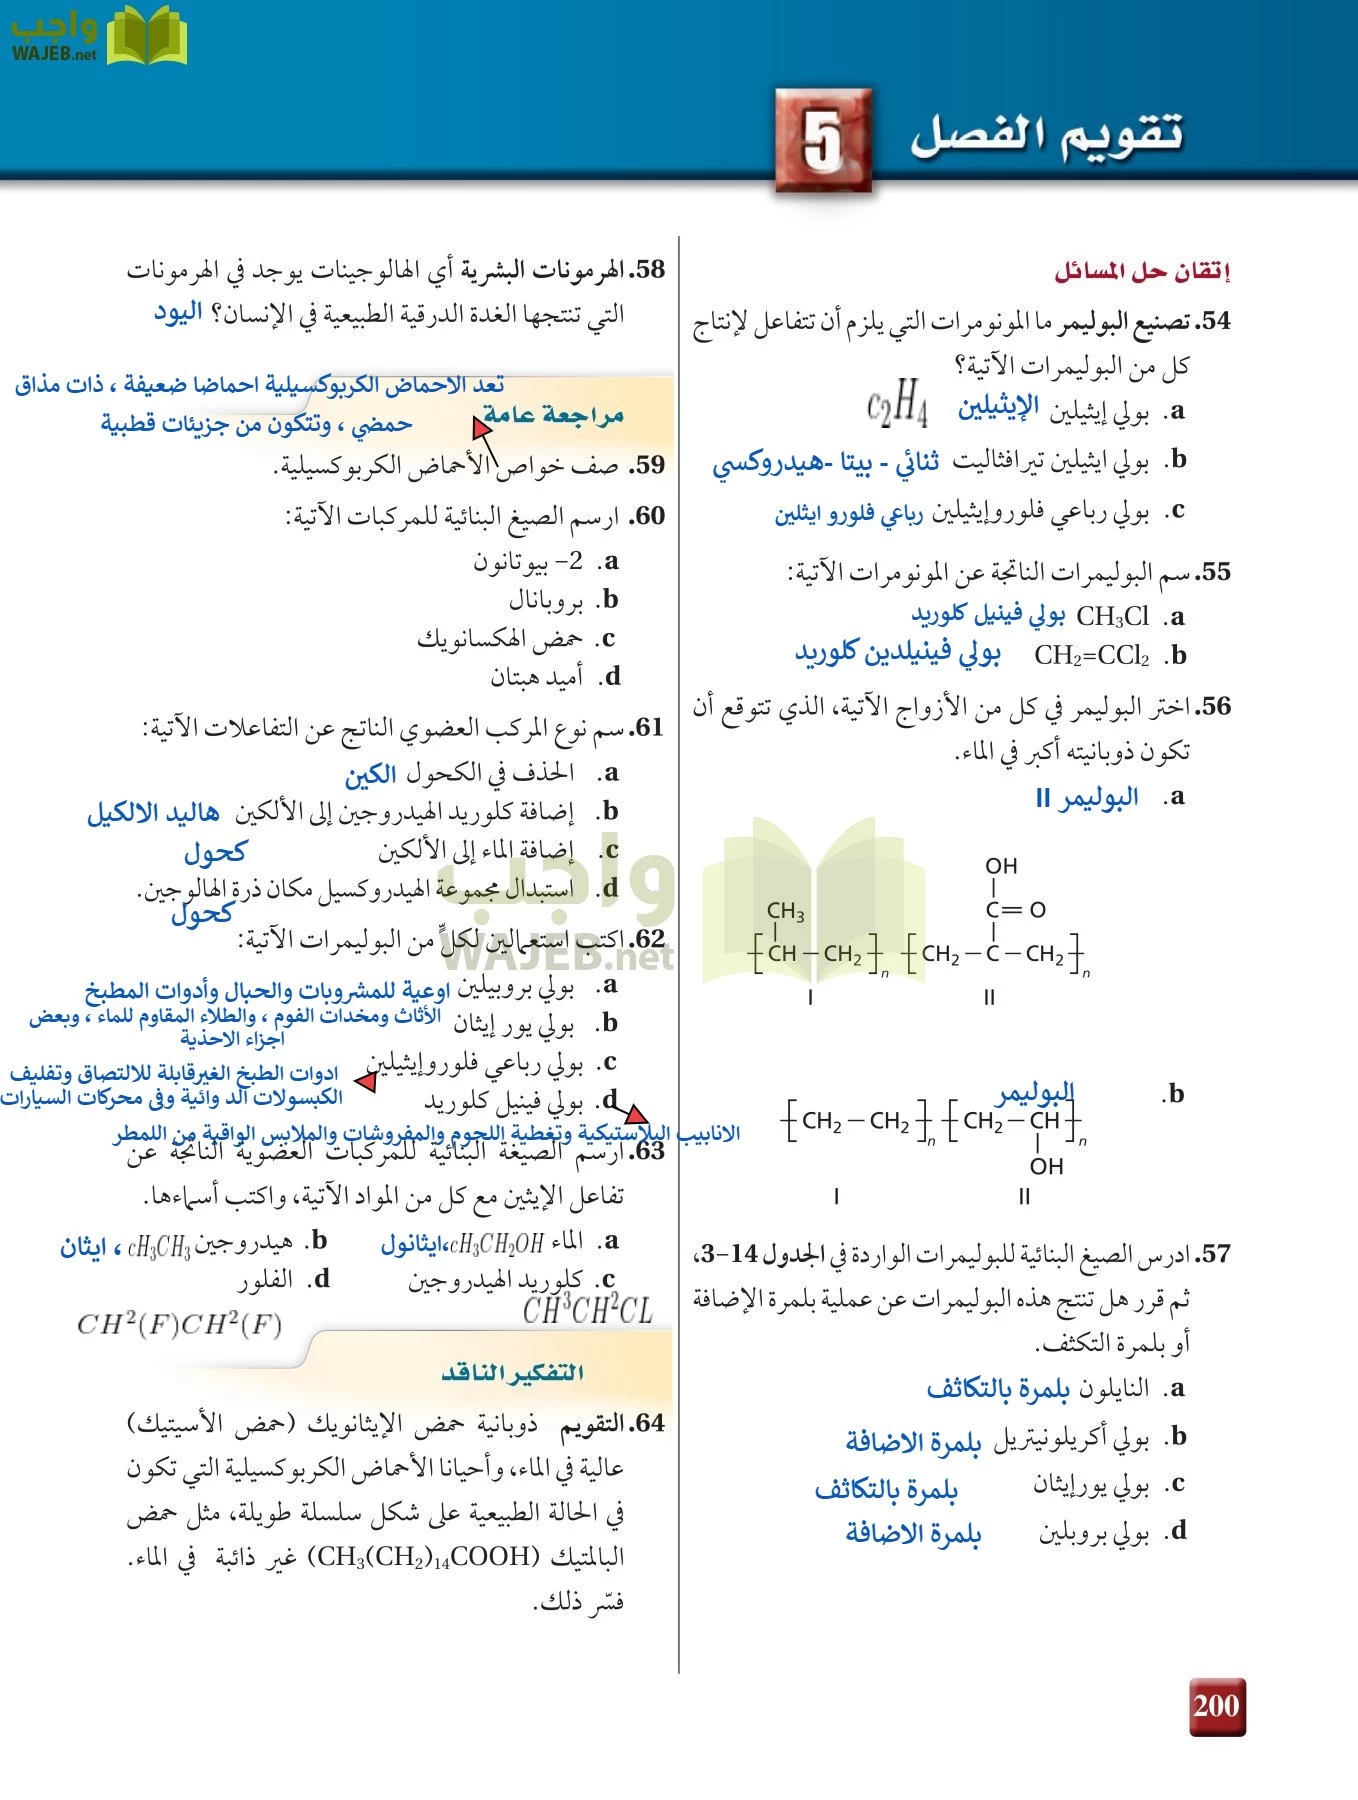 واجب
WAJEB.net
تقويم الفصل 5
إتقان حل المسائل
54. تصنيع البوليمر ما المونومرات التي يلزم أن تتفاعل لإنتاج
كل من البوليمرات الآتية؟
a. بولي إيثيلين الإيثيلين c₂H₄
b. بولي ايثيلين تيرافثاليت ثنائي - بيتا -هيدروكسي
c. بولي رباعي فلوروإيثيلين رباعي فلورو ايثلين
55. سم البوليمرات الناتجة عن المونومرات الآتية:
a. CH₃Cl بولي فينيل كلوريد
b. CH₂=CCl₂ بولي فينيلدين كلوريد
56. اختر البوليمر في كل من الأزواج الآتية، الذي تتوقع أن
تكون ذوبانيته أكبر في الماء.
a. البوليمر II
OH
CH₃ C=O
[CH–CH₂]n [CH₂–C–CH₂]n
I II
b. البوليمر
[CH₂–CH₂]n [CH₂–CH]n
OH
I II
57. ادرس الصيغ البنائية للبوليمرات الواردة في الجدول 14-3،
ثم قرر هل تنتج هذه البوليمرات عن عملية بلمرة الإضافة
أو بلمرة التكثف.
a. النايلون بلمرة بالتكاثف
b. بولي أكريلونيتريل بلمرة الاضافة
c. بولي يورإيثان بلمرة بالتكاثف
d. بولي بروبلين بلمرة الاضافة
58. الهرمونات البشرية أي الهالوجينات يوجد في الهرمونات
التي تنتجها الغدة الدرقية الطبيعية في الإنسان؟ اليود
تعد الاحماض الكربوكسيلية احماضا ضعيفة ، ذات مذاق
مراجعة عامة
حمضي ، وتتكون من جزيئات قطبية
59. صف خواص الأحماض الكربوكسيلية.
60. ارسم الصيغ البنائية للمركبات الآتية:
a. 2– بيوتانون
b. بروبانال
c. حمض الهكسانويك
d. أميد هبتان
61. سم نوع المركب العضوي الناتج عن التفاعلات الآتية:
a. الحذف في الكحول الكين
b. إضافة كلوريد الهيدروجين إلى الألكين هاليد الالكيل
c. إضافة الماء إلى الألكين كحول
d. استبدال مجموعة الهيدروكسيل مكان ذرة الهالوجين.
كحول
62. اكتب استعمالين لكلٍّ من البوليمرات الآتية:
a. بولي بروبيلين اوعية للمشروبات والحبال وأدوات المطبخ
b. بولي يور إيثان الأثاث ومخدات الفوم ، والطلاء المقاوم للماء ، وبعض
اجزاء الاحذية
c. بولي رباعي فلوروإيثيلين ادوات الطبخ الغيرقابلة للالتصاق وتفليف
الكبسولات الد وائية وفى محركات السيارات
d. بولي فينيل كلوريد
الانابيب البلاستيكية وتغطية اللحوم والمفروشات والملابس الواقية من اللمطر
63. ارسم الصيغة البنائية للمركبات العضوية الناتجة عن
تفاعل الإيثين مع كل من المواد الآتية، واكتب أسماءها.
a. الماء cH₃CH₂OH،ايثانول b. هيدروجين cH₃CH₃ ، ايثان
c. كلوريد الهيدروجين d. الفلور
CH³CH²CL CH²(F)CH²(F)
التفكير الناقد
64. التقويم ذوبانية حمض الإيثانويك (حمض الأسيتيك)
عالية في الماء، وأحيانا الأحماض الكربوكسيلية التي تكون
في الحالة الطبيعية على شكل سلسلة طويلة، مثل حمض
البالمتيك (CH₃(CH₂)₁₄COOH) غير ذائبة في الماء.
فسّر ذلك.
واجب
WAJEB.net
200